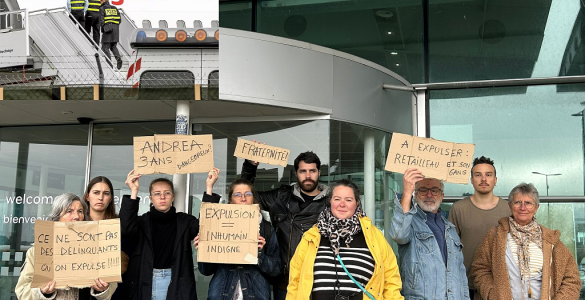 ANDREA
3 ANS
FRATERNITÉ
A EXPULSER:
RETAILLEAU ET SON
GANG
EXPULSION
= INHUMAIN
INDIGNE
CE NE SONT PAS
DES DÉLINQUANTS
QU'ON EXPULSE!!!!
welcome
bienvenue